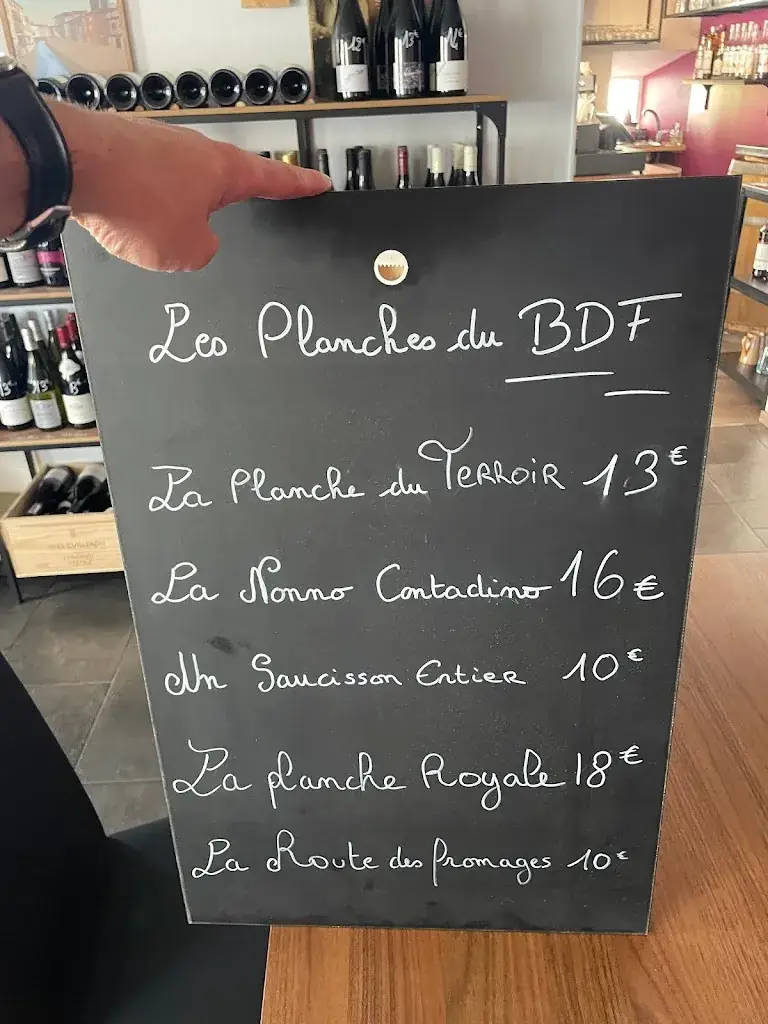 12€
13€
14€
Les Planches du BDF
La Planche du TERROIR 13€
La Nonno Contadino 16€
Un Saucisson Entier 10€
La planche Royale 18€
La Route des fromages 10€